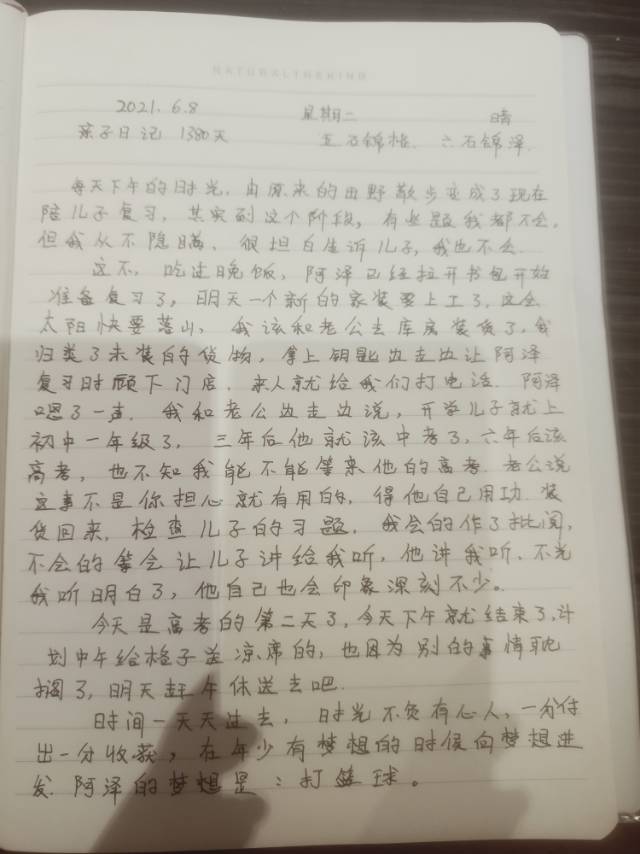 NATURALTHEKING
2021.6.8 星期二 晴
亲子日记 1380天 五石锦格、六石锦泽
每天下午的时光，由原来的田野散步变成了现在
陪儿子复习，其实到这个阶段，有些题我都不会，
但我从不隐瞒、很坦白告诉儿子，我也不会.
这不，吃过晚饭，阿泽已经拉开书包开始
准备复习了，明天一个新的家装要上工了，这会
太阳快要落山、我该和老公去库房装货了，我
归类了未装的货物，拿上钥匙边走边让阿泽
复习时顾下门店.来人就给我们打电话.阿泽
嗯了一声.我和老公边走边说，开学儿子就上
初中一年级了，三年后他就该中考了，六年后该
高考，也不知我能不能等来他的高考.老公说
这事不是你担心就有用的，得他自己用功.装
货回来，检查儿子的习题.我会的作了批阅，
不会的等会让儿子讲给我听，他讲我听.不光
我听明白了，他自己也会印象深刻不少。
今天是高考的第二天了，今天下午就结束了，计
划中午给格子送凉席的，也因为别的事情耽
搁了，明天赶午休送去吧.
时间一天天过去，时光不负有心人，一分付
出一分收获，在年少有梦想的时候向梦想进
发.阿泽的梦想是：打篮球。